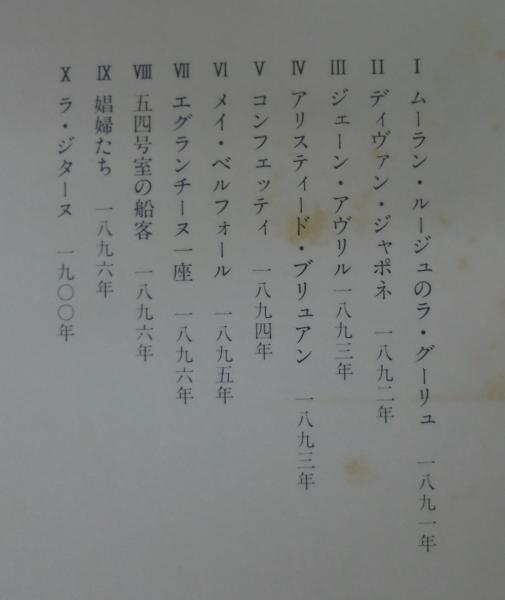 I ムーラン・ルージュのラ・グーリュ 一八九一年
II ディヴァン・ジャポネ 一八九二年
III ジェーン・アヴリル 一八九三年
IV アリスティード・ブリュアン 一八九三年
V コンフェッティ 一八九四年
VI メイ・ベルフォール 一八九五年
VII エグランチーヌ一座 一八九六年
VIII 五四号室の船客 一八九六年
IX 娼婦たち 一八九六年
X ラ・ジターヌ 一九〇〇年